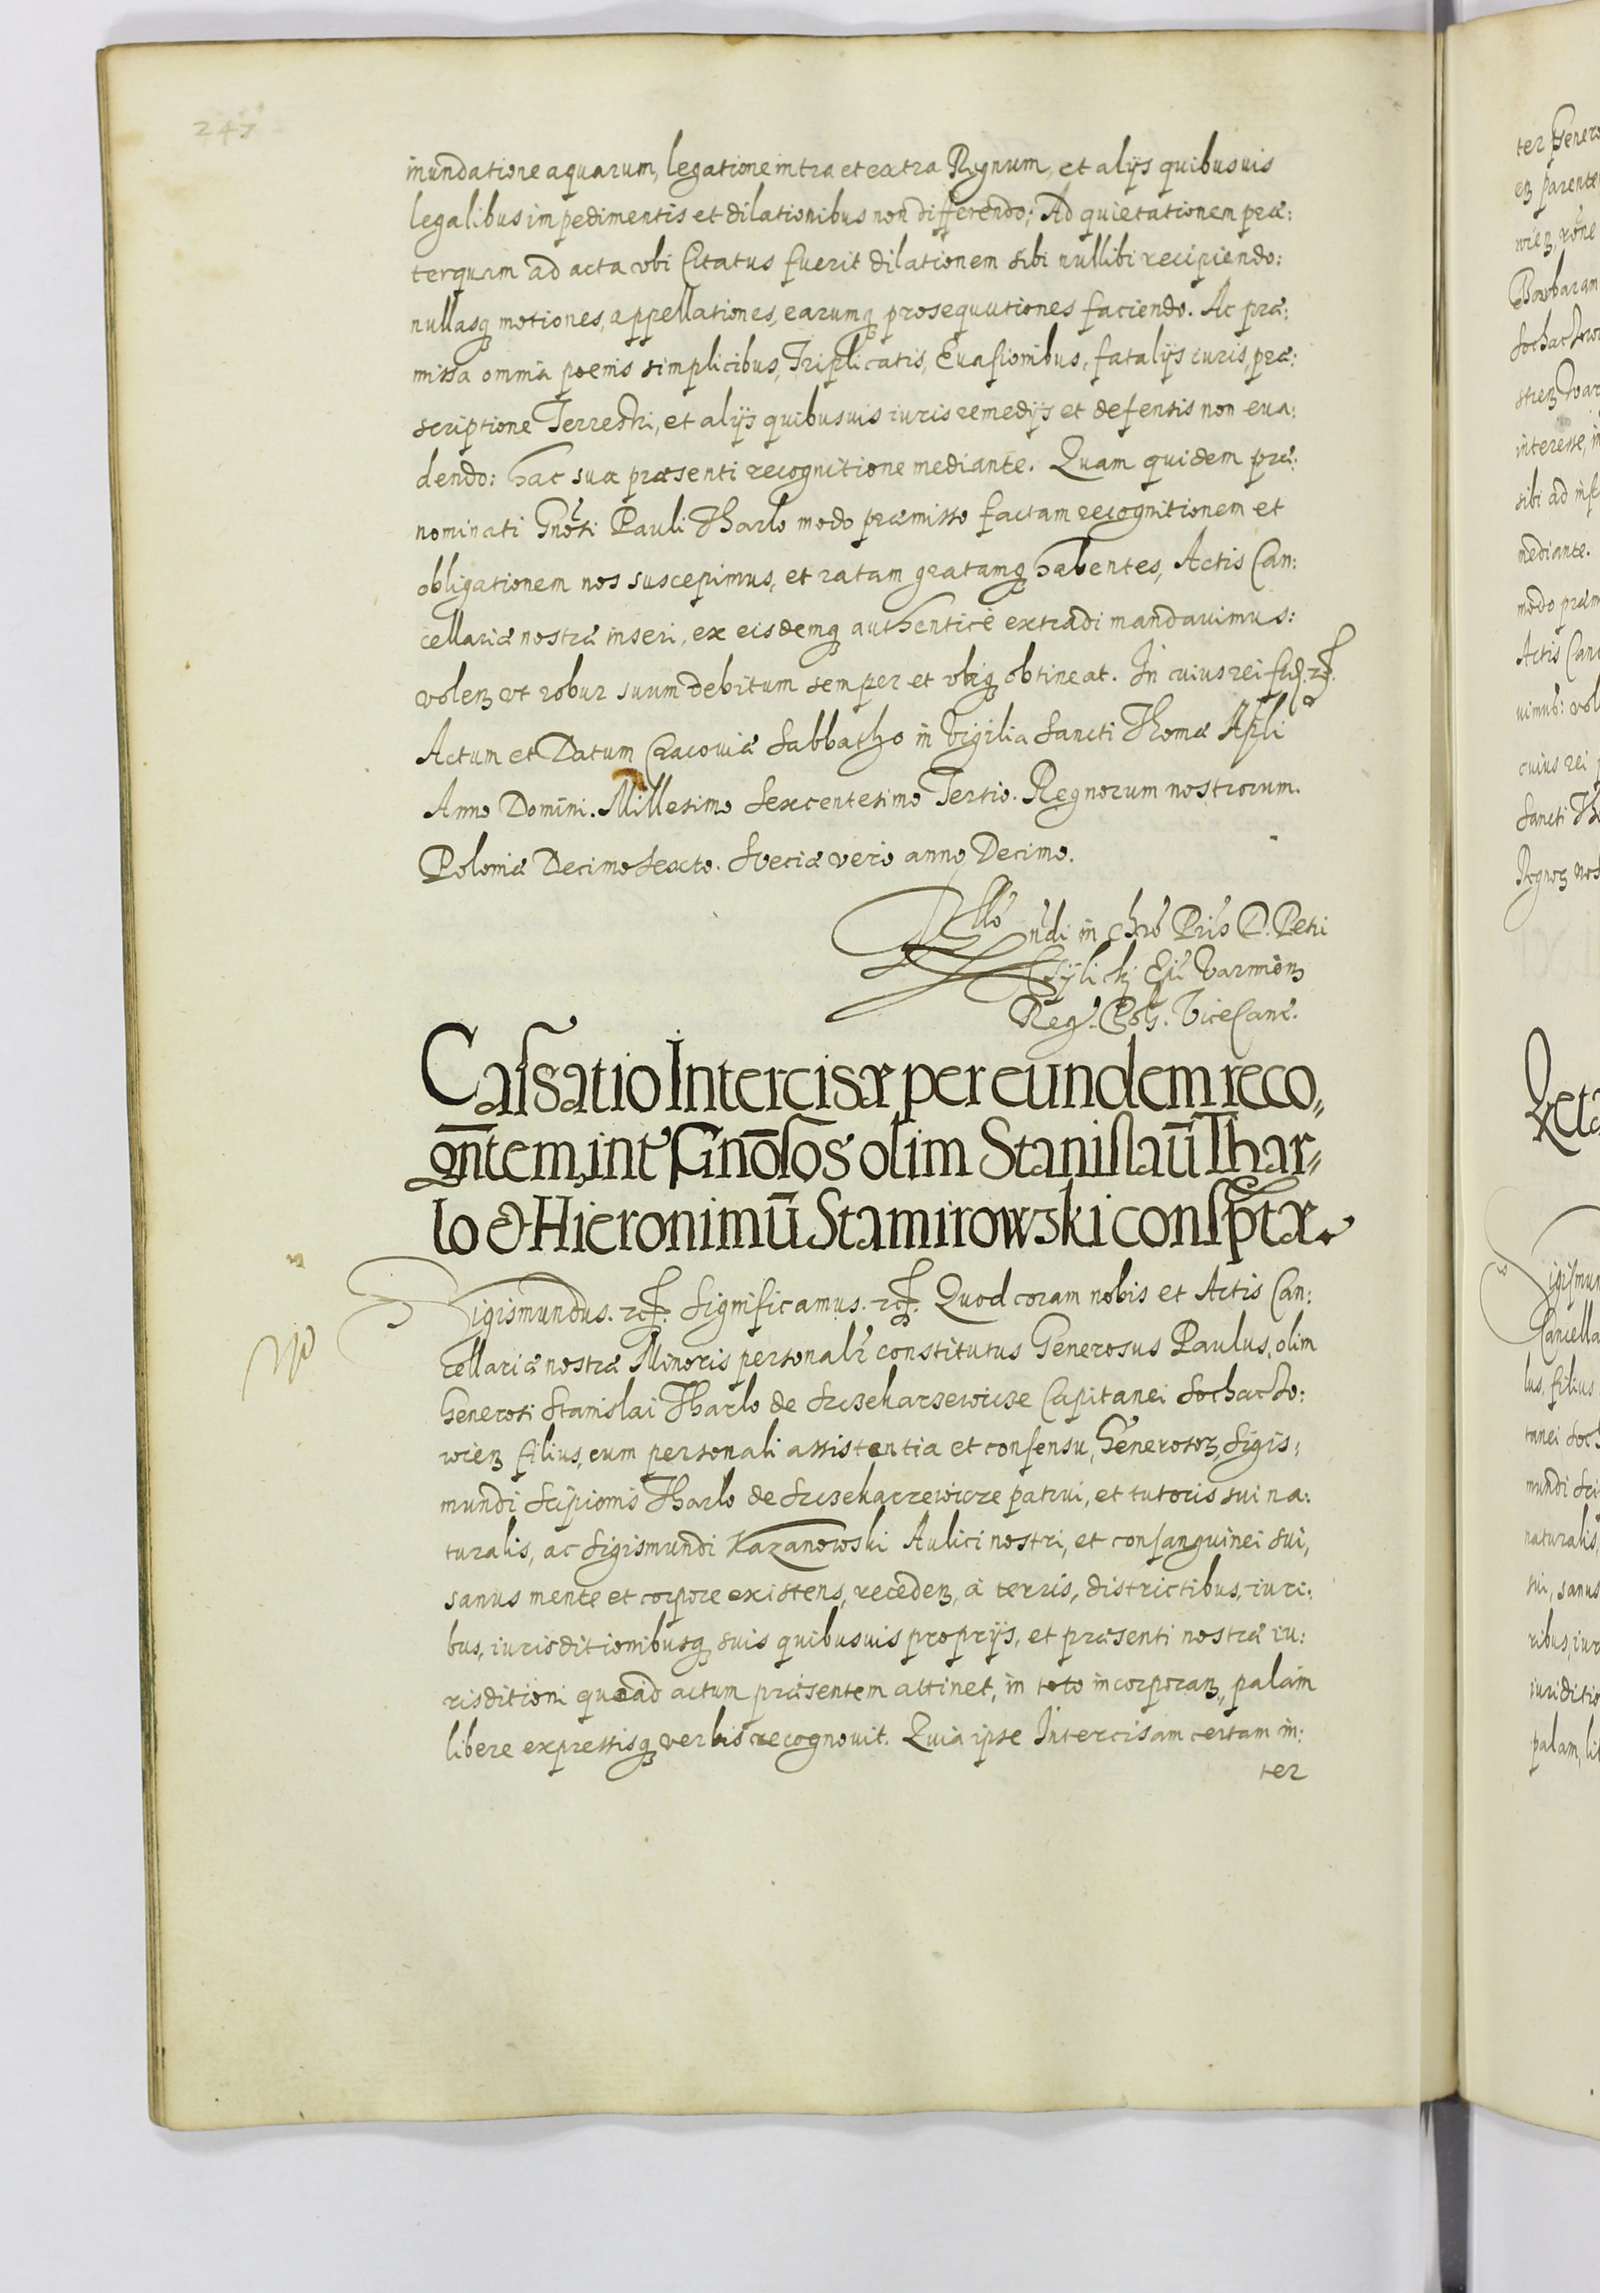 247
inundatione aquarum, legatione intra et extra Regnum, et alijs quibusuis
legalibus impedimentis et dilationibus non differendo; Ad quietationem præ:
terquam ad acta vbi Citatus fuerit dilationem sibi nullibi recipiendo:
nullasq3 motiones, appellationes, earumq3 prosequutiones faciendo. Ac præ:
missa omnia poenis simplicibus, Triplicatis, Euasionibus, fatalijs iuris, præ:
scriptione Terrestri, et alijs quibusuis iuris remedijs et defensis non eua:
dendo: hac sua præsenti recognitione mediante. Quam quidem præ:
nominati Gnosi Pauli Tharlo modo præmisso factam recognitionem et
obligationem nos suscepimus, et ratam gratamq3 habentes, Actis Can:
cellariæ nostræ inseri, ex eisdemq3 authenticè extradi mandauimus:
volen3 vt robur suum debitum semper et vbiq3 obtineat. In cuius rei fid. etc.
Actum et Datum Cracouiæ Sabbatho in Vigilia Sancti Thomæ Apli
Anno Domini. Millesimo Sexcentesimo Tertio. Regnorum nostrorum.
Poloniæ Decimo Sexto. Sueciæ vero anno Decimo.
Rello Rndi in Chro Pris D. Petri
Tylicky Epi Varmien3
Regni Pol. ViceCanc.
Cassatio Intercisæ per eundem reco„
gntem, int Gnosos olim Stanislaū Thar„
lo & Hieronimū Stamirowski conscptæ.
Sigismundus. etc. Significamus. etc. Quod coram nobis et Actis Can:
cellariæ nostræ Minoris personalr constitutus Generosus Paulus, olim
Generosi Stanislai Tharlo de Szczekarzewicze Capitanei Sochaczo:
wien3 filius, cum personali assistentia et consensu, Generosor3, Sigis:
mundi Scipionis Tharlo de Szczekarzewicze patrui, et tutoris sui na:
turalis, ac Sigismundi Kazanowski Aulici nostri, et consanguinei sui,
sanus mente et corpore existens, receden3, à terris, districtibus, iuri:
bus, iurisditionibusq3 suis quibusuis proprijs, et præsenti nostræ iu:
risditioni quoad actum præsentem attinet, in toto incorporan3, palam
libere expressisq3 verbis recognouit. Quia ipse Intercisam certam in:
ter